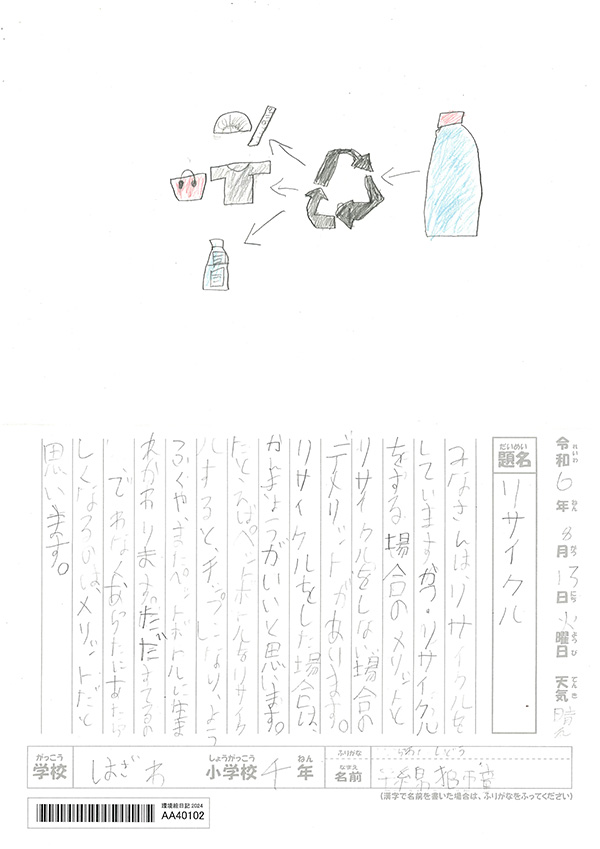 令和6年8月13日火曜日 天気晴れ
れいわ ねん がつ にち ようび てんき
だいめい
題名 リサイクル
みなさんは、リサイクルを
していますか・リサイクル
をする場合のメリットと
リサイクルをしない場合の
デメリットがあります。
リサイクルをした場合は、
かんきょうがいいと思います。
たとえばペットボトルをリサイク
ルすると、チップになり、よう
ふくや、またペットボトルに生ま
れかわります。ただすてるの
ではなくあらたにあたら
しくなるのは、メリットだと
思います。
がっこう しょうがっこう ねん
学校 はざわ 小学校 4年
ふりがな
なまえ
名前
(漢字で名前を書いた場合は、ふりがなをふってください)
環境絵日記2024
AA40102